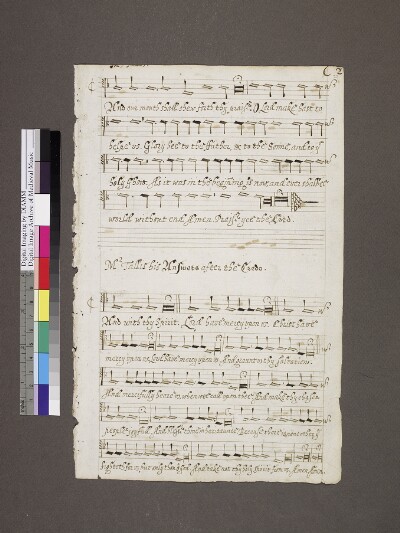 And our mouth shall shew forth thy praise. O Lord make hast to
helpe us. Glory bee to the father, & to the Sonne, and to y
holy ghost. As it was in the beginning is now, and ever shalbee
world without end, Amen. Praise yee the Lord.
Mr Tallis his Answers after the Credo.
And with thy spirit. Lord have mercy upon us. Christ have
mercy upon us Lord have mercy upon us. And graunt us thy salvation.
And mercifully heare us when wee call upon thee. And make thy chosen
people joyfull. And blesse thine inheritance. Because there is none other y
fighteth for us but only thou o God. And take not thy holy spirit from us. Amen. Amen.
Digital Imaging by DIAMM
Digital Image Archive of Medieval Music